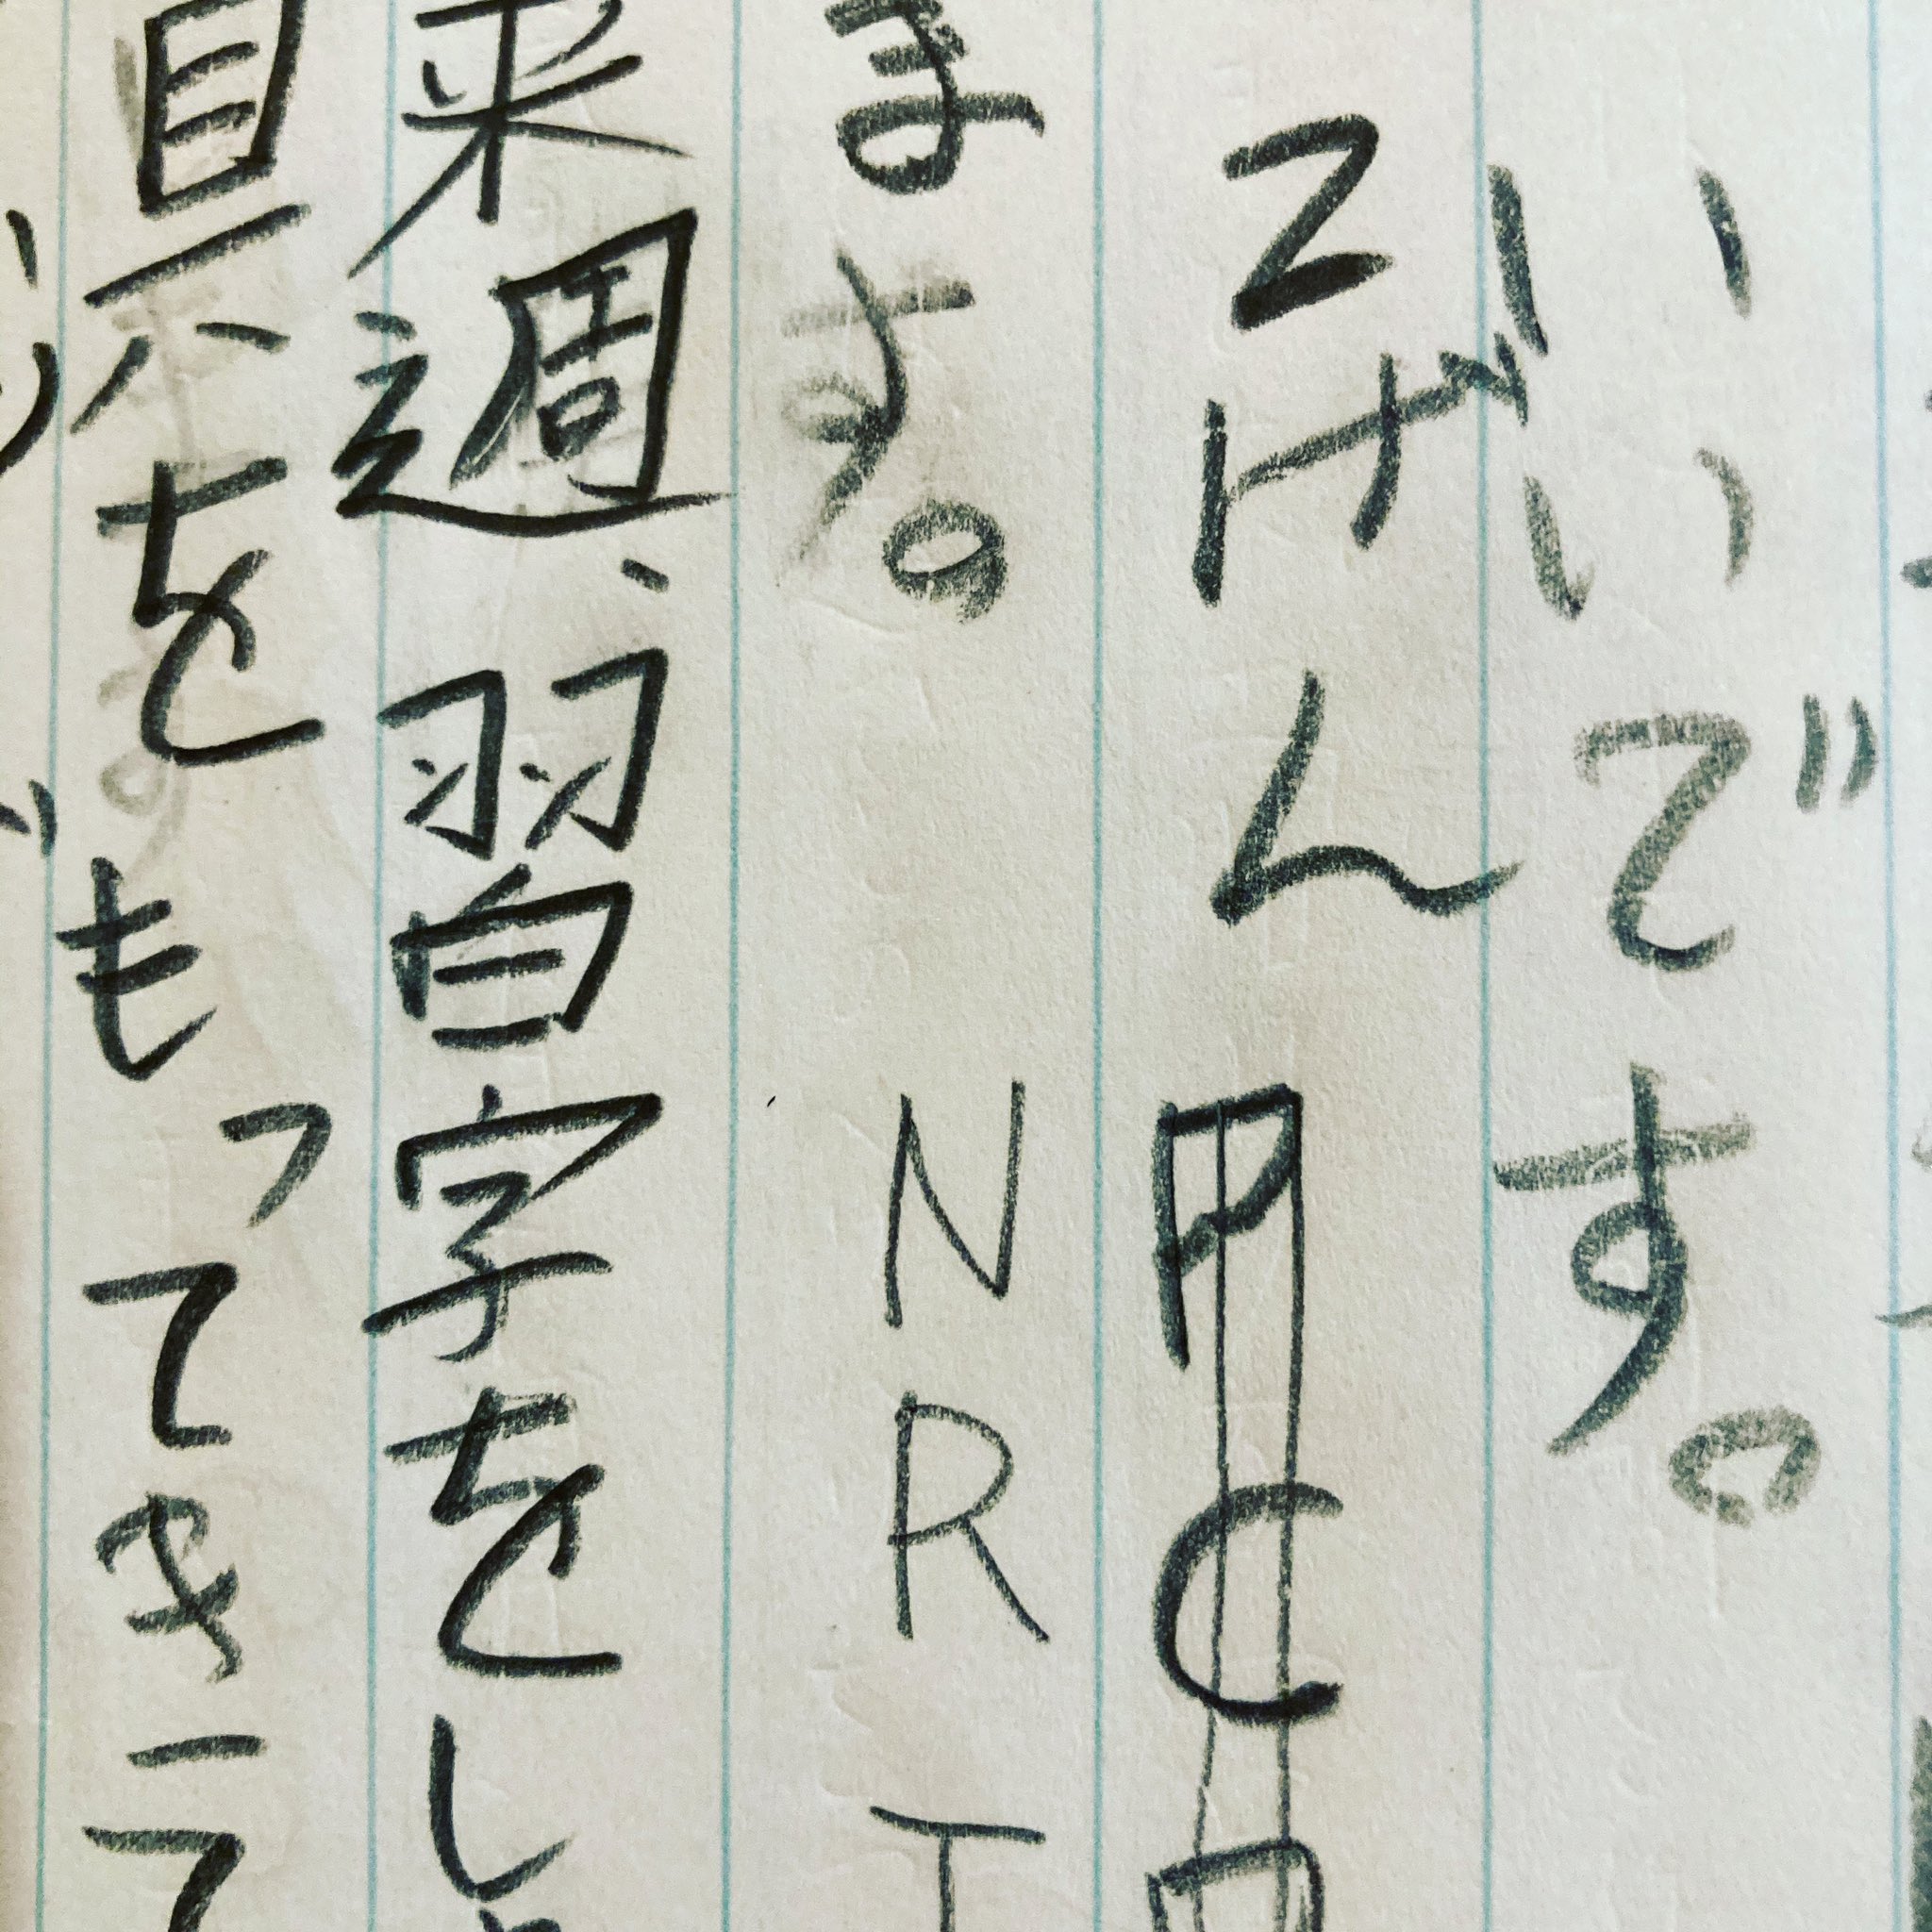 いいです。
こげんPCR
ます。 NRT
来週、習字をし
具をもってきて